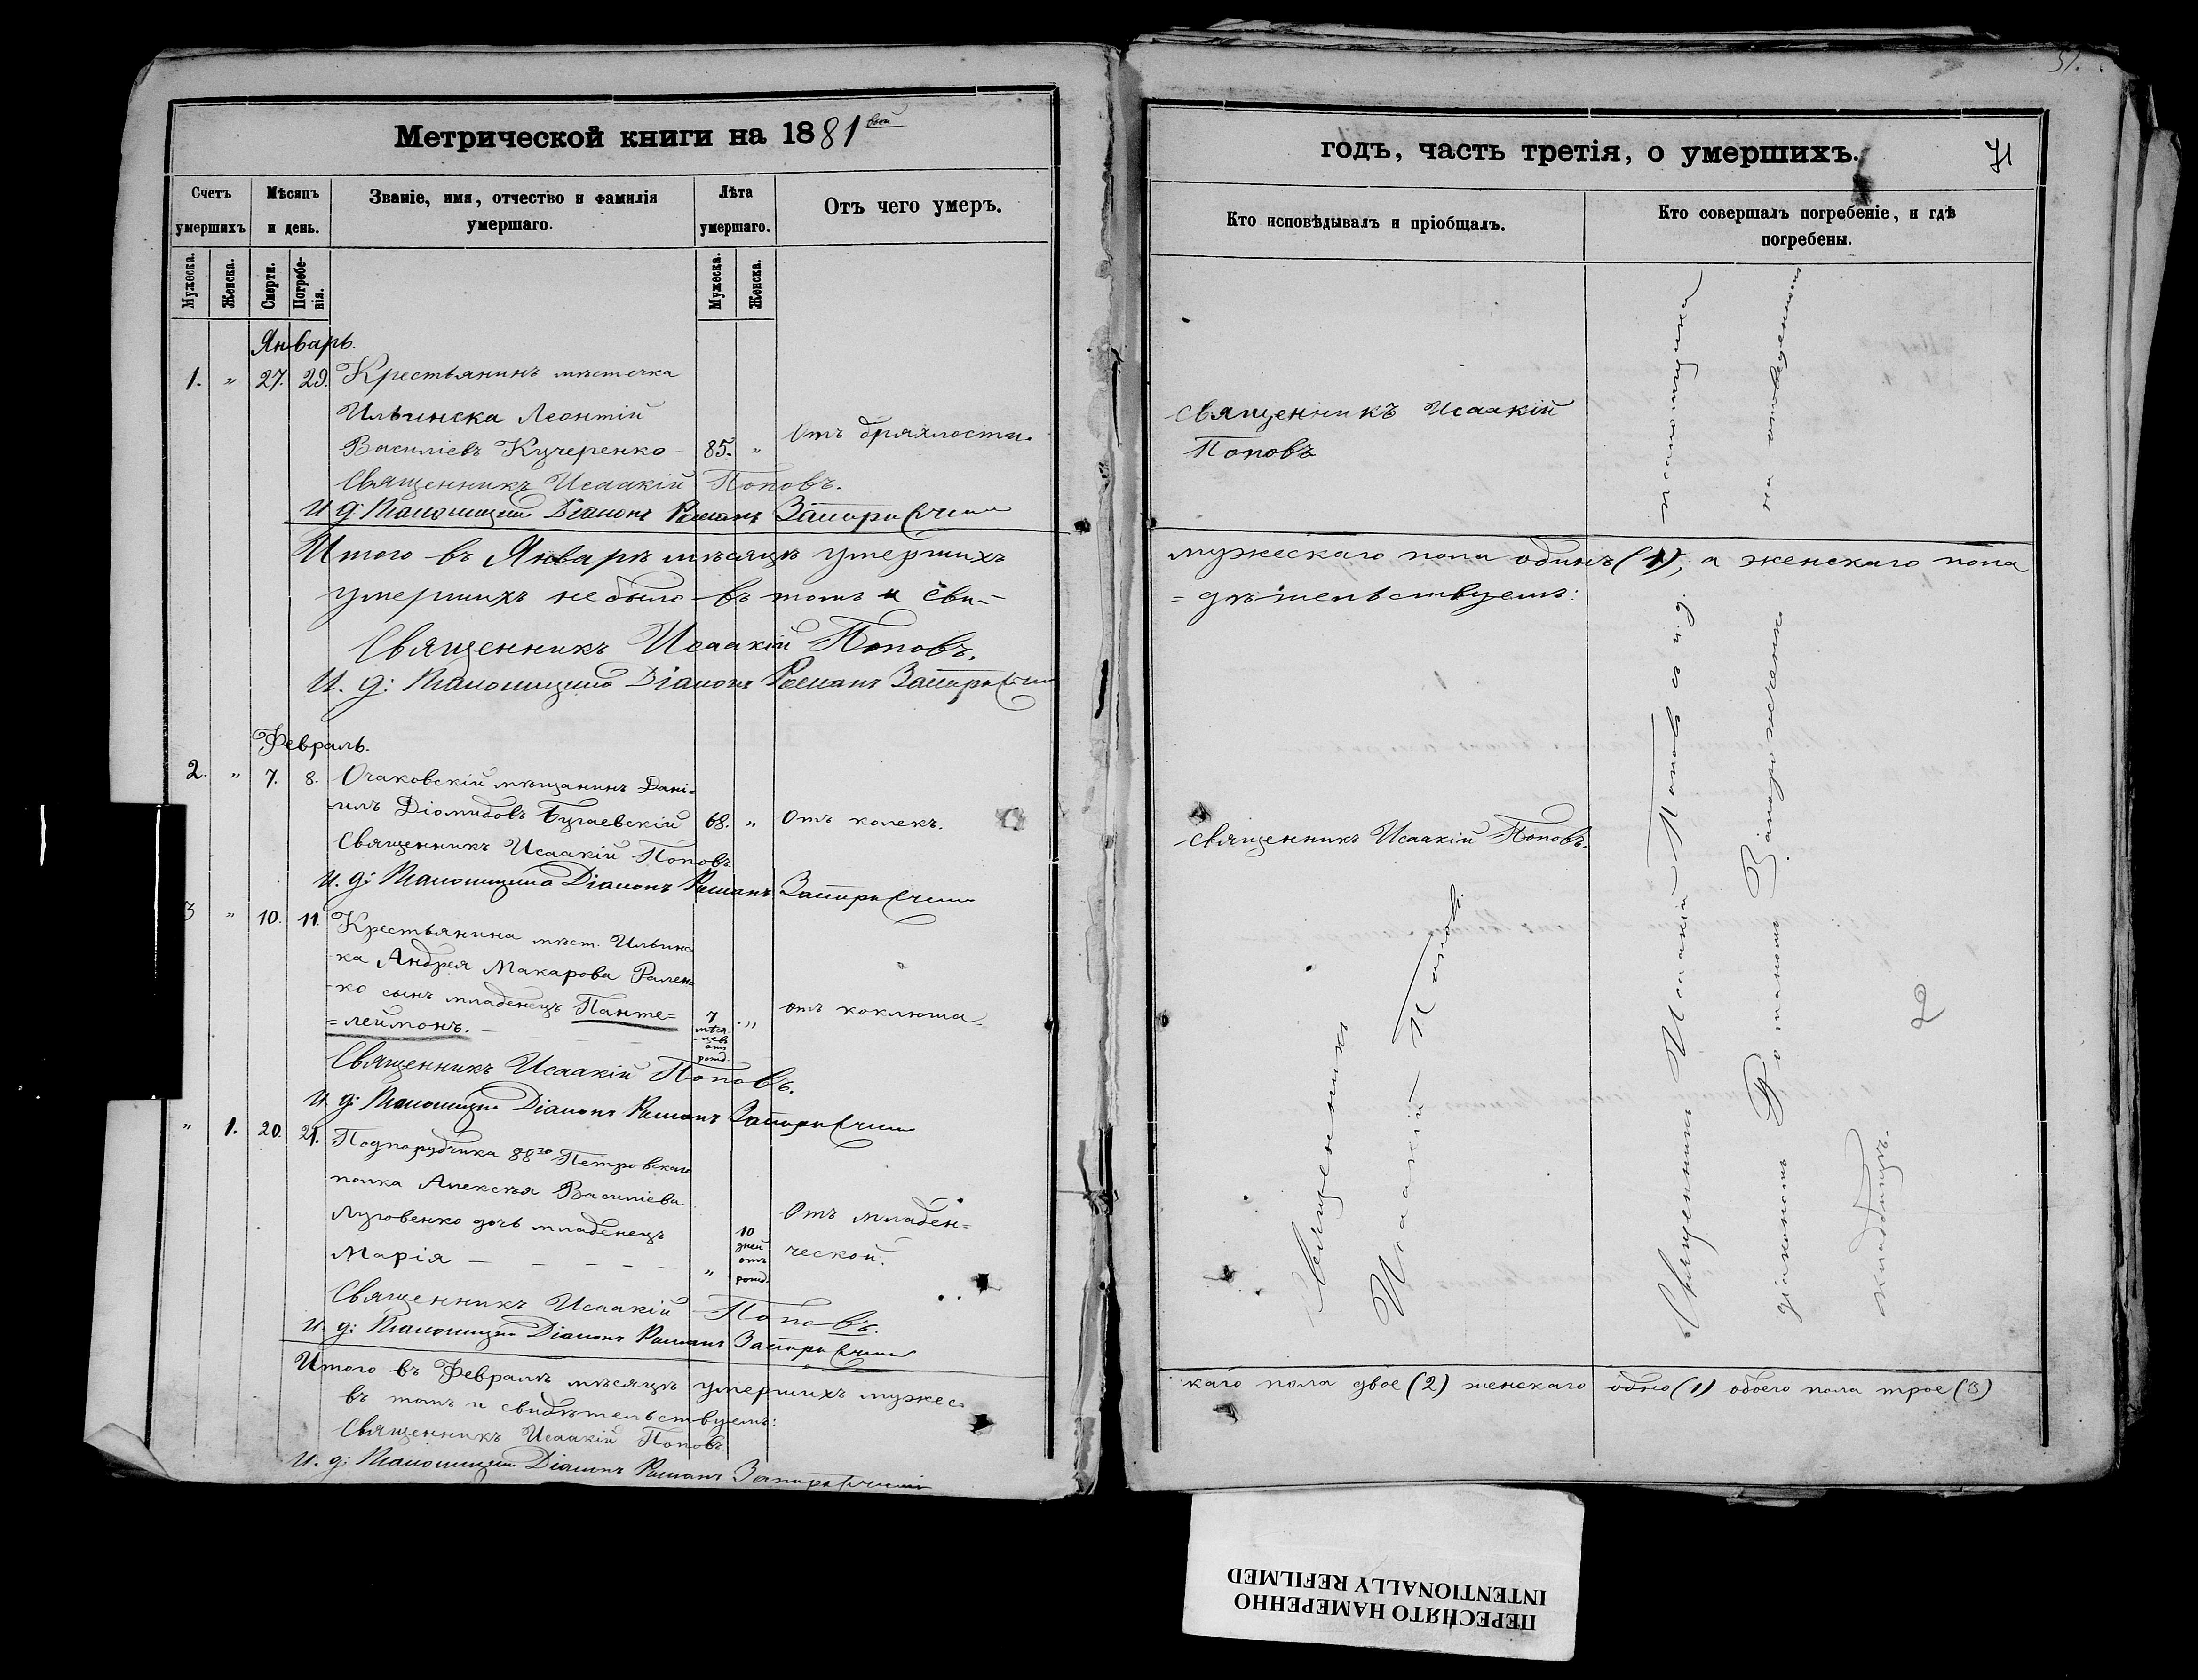 Метрической книги на 1881 вый
Счетъ умершихъ
Мѣсяцъ и день.
Званіе, имя, отчество и фамилія умершаго.
Лѣта умершаго.
Отъ чего умеръ.
Мужеска.
Женска.
Смерти.
Погребенія.
Мужеска.
Женска.
Январь.
1. " 27. 29. Крестьянинъ мѣстечка
Ильинска Леонтій
Василіевъ Кучеренко - 85. " Отъ дряхлости.
Священникъ Исаакій Поповъ.
И. д: Псаломщика Діаконъ Романъ
Итого въ Январѣ мѣсяцѣ умершихъ
умершихъ не было въ томъ и сви-
Священникъ Исаакій Поповъ.
И. д: Псаломщика Діаконъ Романъ
Февраль.
2. " 7. 8. Очаковскій мѣщанинъ Дані=
=илъ Діомидовъ Бугаевскій 68. " Отъ колекъ.
Священникъ Исаакій Поповъ.
И. д: Псаломщика Діаконъ Романъ
3 " 10. 11. Крестьянина мѣст. Ильинс-
ка Андрея Макарова
-ко сынъ младенецъ Панте=
=леймонъ. - 7 мѣся-цевъ отъ рожд. " отъ коклюша.
Священникъ Исаакій Поповъ.
И. д: Псаломщика Діаконъ Романъ
" 1. 20. 21. Подпоручика 88го Петровскаго
полка Алексѣя Василіева
Луговенко дочь младенецъ
Марія - - - - - " 10 дней отъ рожд. Отъ младен=
ческой.
Священникъ Исаакій Поповъ.
И. д: Псаломщика Діаконъ Романъ
Итого въ Февралѣ мѣсяцѣ умершихъ мужес-
въ томъ и свидѣтельствуемъ:
Священникъ Исаакій Поповъ.
И. д: Псаломщика Діаконъ Романъ
годъ, часть третія, о умершихъ.
71
51.
Кто исповѣдывалъ и пріобщалъ.
Кто совершалъ погребеніе, и гдѣ погребены.
Священникъ Исаакій
Поповъ
мужескаго пола одинъ (1), а женскаго пола
=дѣтельствуемъ:
Священникъ Исаакій Поповъ.
Священникъ
Исаакій Поповъ.
Священникъ Исаакій Поповъ съ и. д. псаломщика
діакономъ Романомъ Запорожченко на отведенномъ
кладбищѣ.
2
каго пола двое (2) женскаго одно (1) обоего пола трое (3)
ПЕРЕСНЯТО НАМЕРЕННО
INTENTIONALLY REFILMED